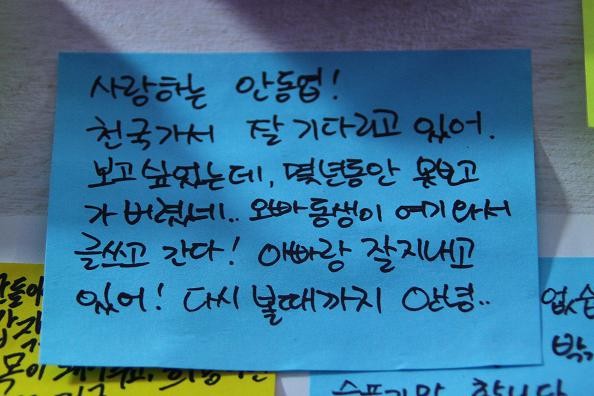 사랑하는 안동엽!
천국가서 잘 기다리고 있어.
보고싶었는데, 몇년동안 못보고
가버렸네.. 오빠동생이 여기와서
글쓰고 간다! 아빠랑 잘지내고
있어! 다시 볼때까지 안녕..